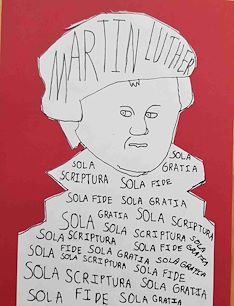 MARTIN LUTHER
SOLA SOLA
SCRIPTURA SOLA FIDE GRATIA
SOLA FIDE SOLA GRATIA
GRATIA SOLA SCRIPTURA
SOLA SOLA SCRIPTURA SOLA
SOLA SCRIPTURA SOLA FIDE GRATIA
SOLA FIDE SOLA GRATIA SOLA GRATIA
SOLA SOLA SCRIPTURA SOLA FIDE
SOLA SCRIPTURA SOLA GRATIA
SOLA FIDE SOLA GRATIA